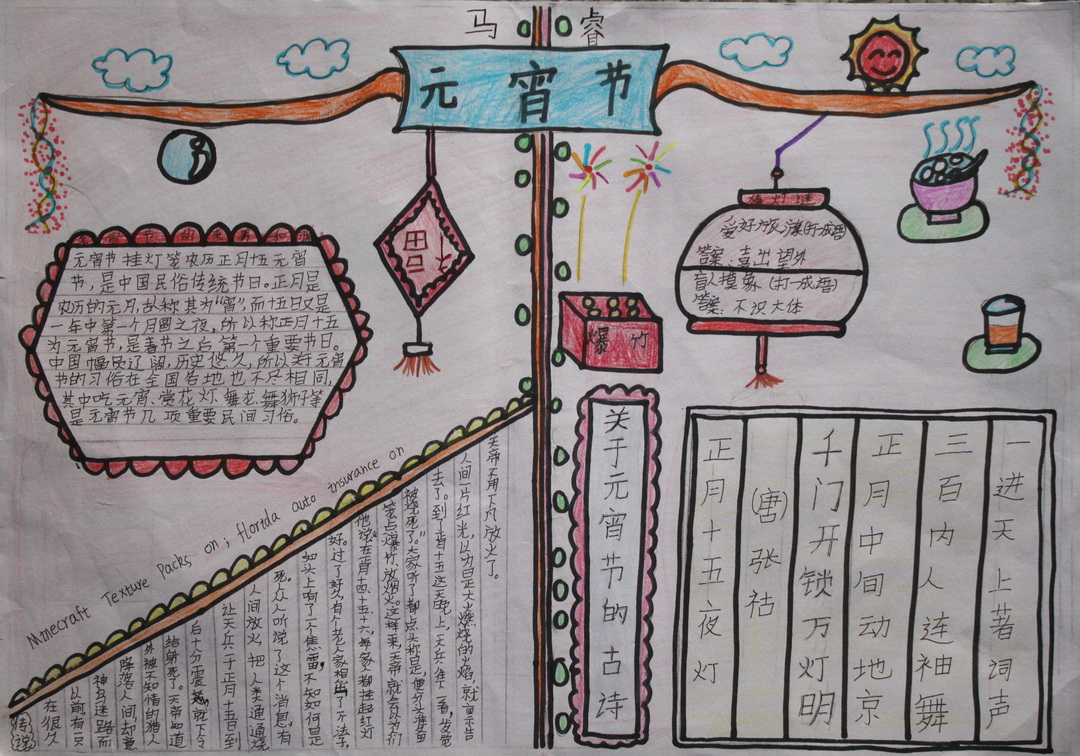 马 睿
元宵节
猜灯谜
爱好旅游(打一成语)
答案：喜出望外
盲人摸象(打一成语)
答案：不识大体
元宵节挂灯笼农历正月十五元宵
节，是中国民俗传统节日。正月是
农历的元月，故称其为“宵”，而十五日又是
一年中第一个月圆之夜，所以称正月十五
为元宵节，是春节之后第一个重要节日。
中国幅员辽阔，历史悠久，所以若元宵
节的习俗在全国各地也不尽相同，
其中吃元宵、赏花灯、舞龙、舞狮子等
是元宵节几项重要民间习俗。
爆竹
Minecraft Texture Packs on; florida auto insurance on
传说
在很久
以前有一只
神鸟迷路而
降落人间，却意
外被不知情的猎人
给射死了。天帝知道
后十分震怒，就下令
让天兵于正月十五日到
人间放火，把人类通通烧
死。众人听说了这个消息，有
如头上响了一个焦雷，不知如何是
好。过了好久，有个老人家想出了个法子，
他说“在正月十四、十五、十六，每家都挂起红灯
笼、点爆竹、放烟火。这样来，天帝就会以为人们
被烧死了。”大家听了都点头称是，便分头准备
去了。到了正月十五这天晚上，天兵往下一看，发觉
人间一片红光，以为是正大火燃烧的火焰，就禀告
天帝不用下凡放火了。
关于元宵节的古诗
正月十五夜灯
(唐)张祜
千门开锁万灯明
正月中间动地京
三百内人连袖舞
一进天上著词声